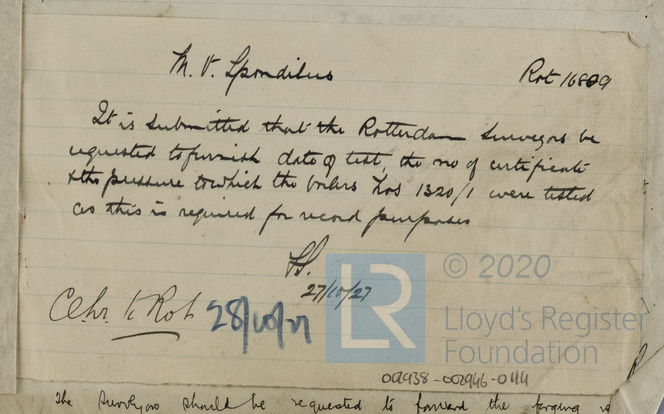 M.V. Spondilus Rot 16809
It is submitted that the Rotterdam Surveyors be
requested to furnish date of test, the no of certificate
& the pressure to which the boilers Nos 1320/1 were tested
as this is required for record purposes
27/10/27
Rot 28/10/27
LR
© 2020
Lloyd's Register
Foundation
002938-002946-0144
The Surveyors should be requested to forward the forging